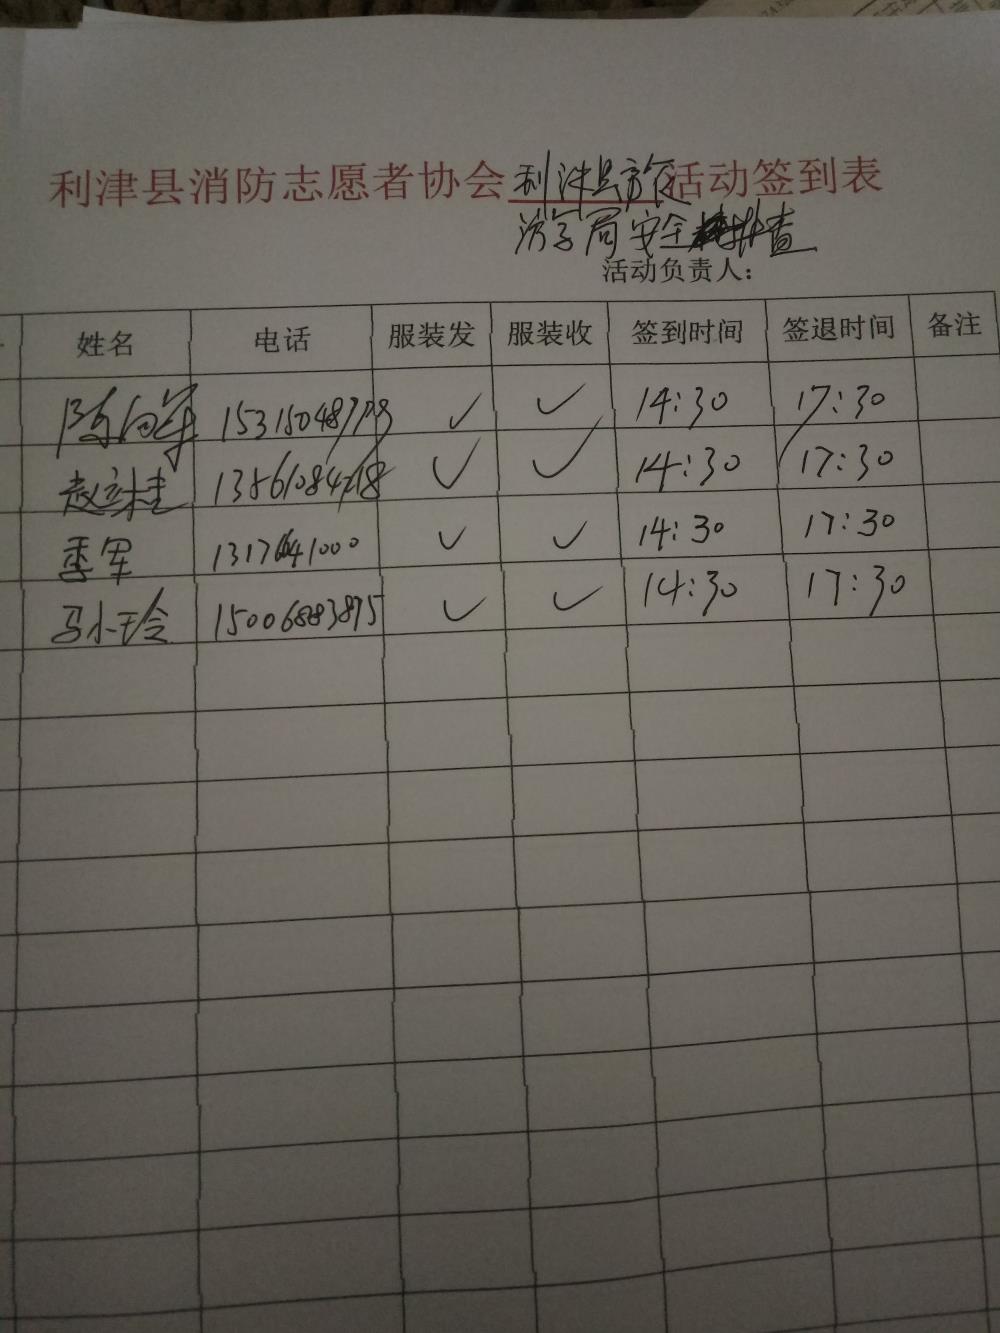 利津县消防志愿者协会利津县旅活动签到表
游局安全排查
活动负责人：
姓名 电话 服装发 服装收 签到时间 签退时间 备注
陈向军 ✓ ✓ 14:30 17:30
赵桂 ✓ ✓ 14:30 17:30
季军 ✓ ✓ 14:30 17:30
马小玲 15006883875 ✓ ✓ 14:30 17:30